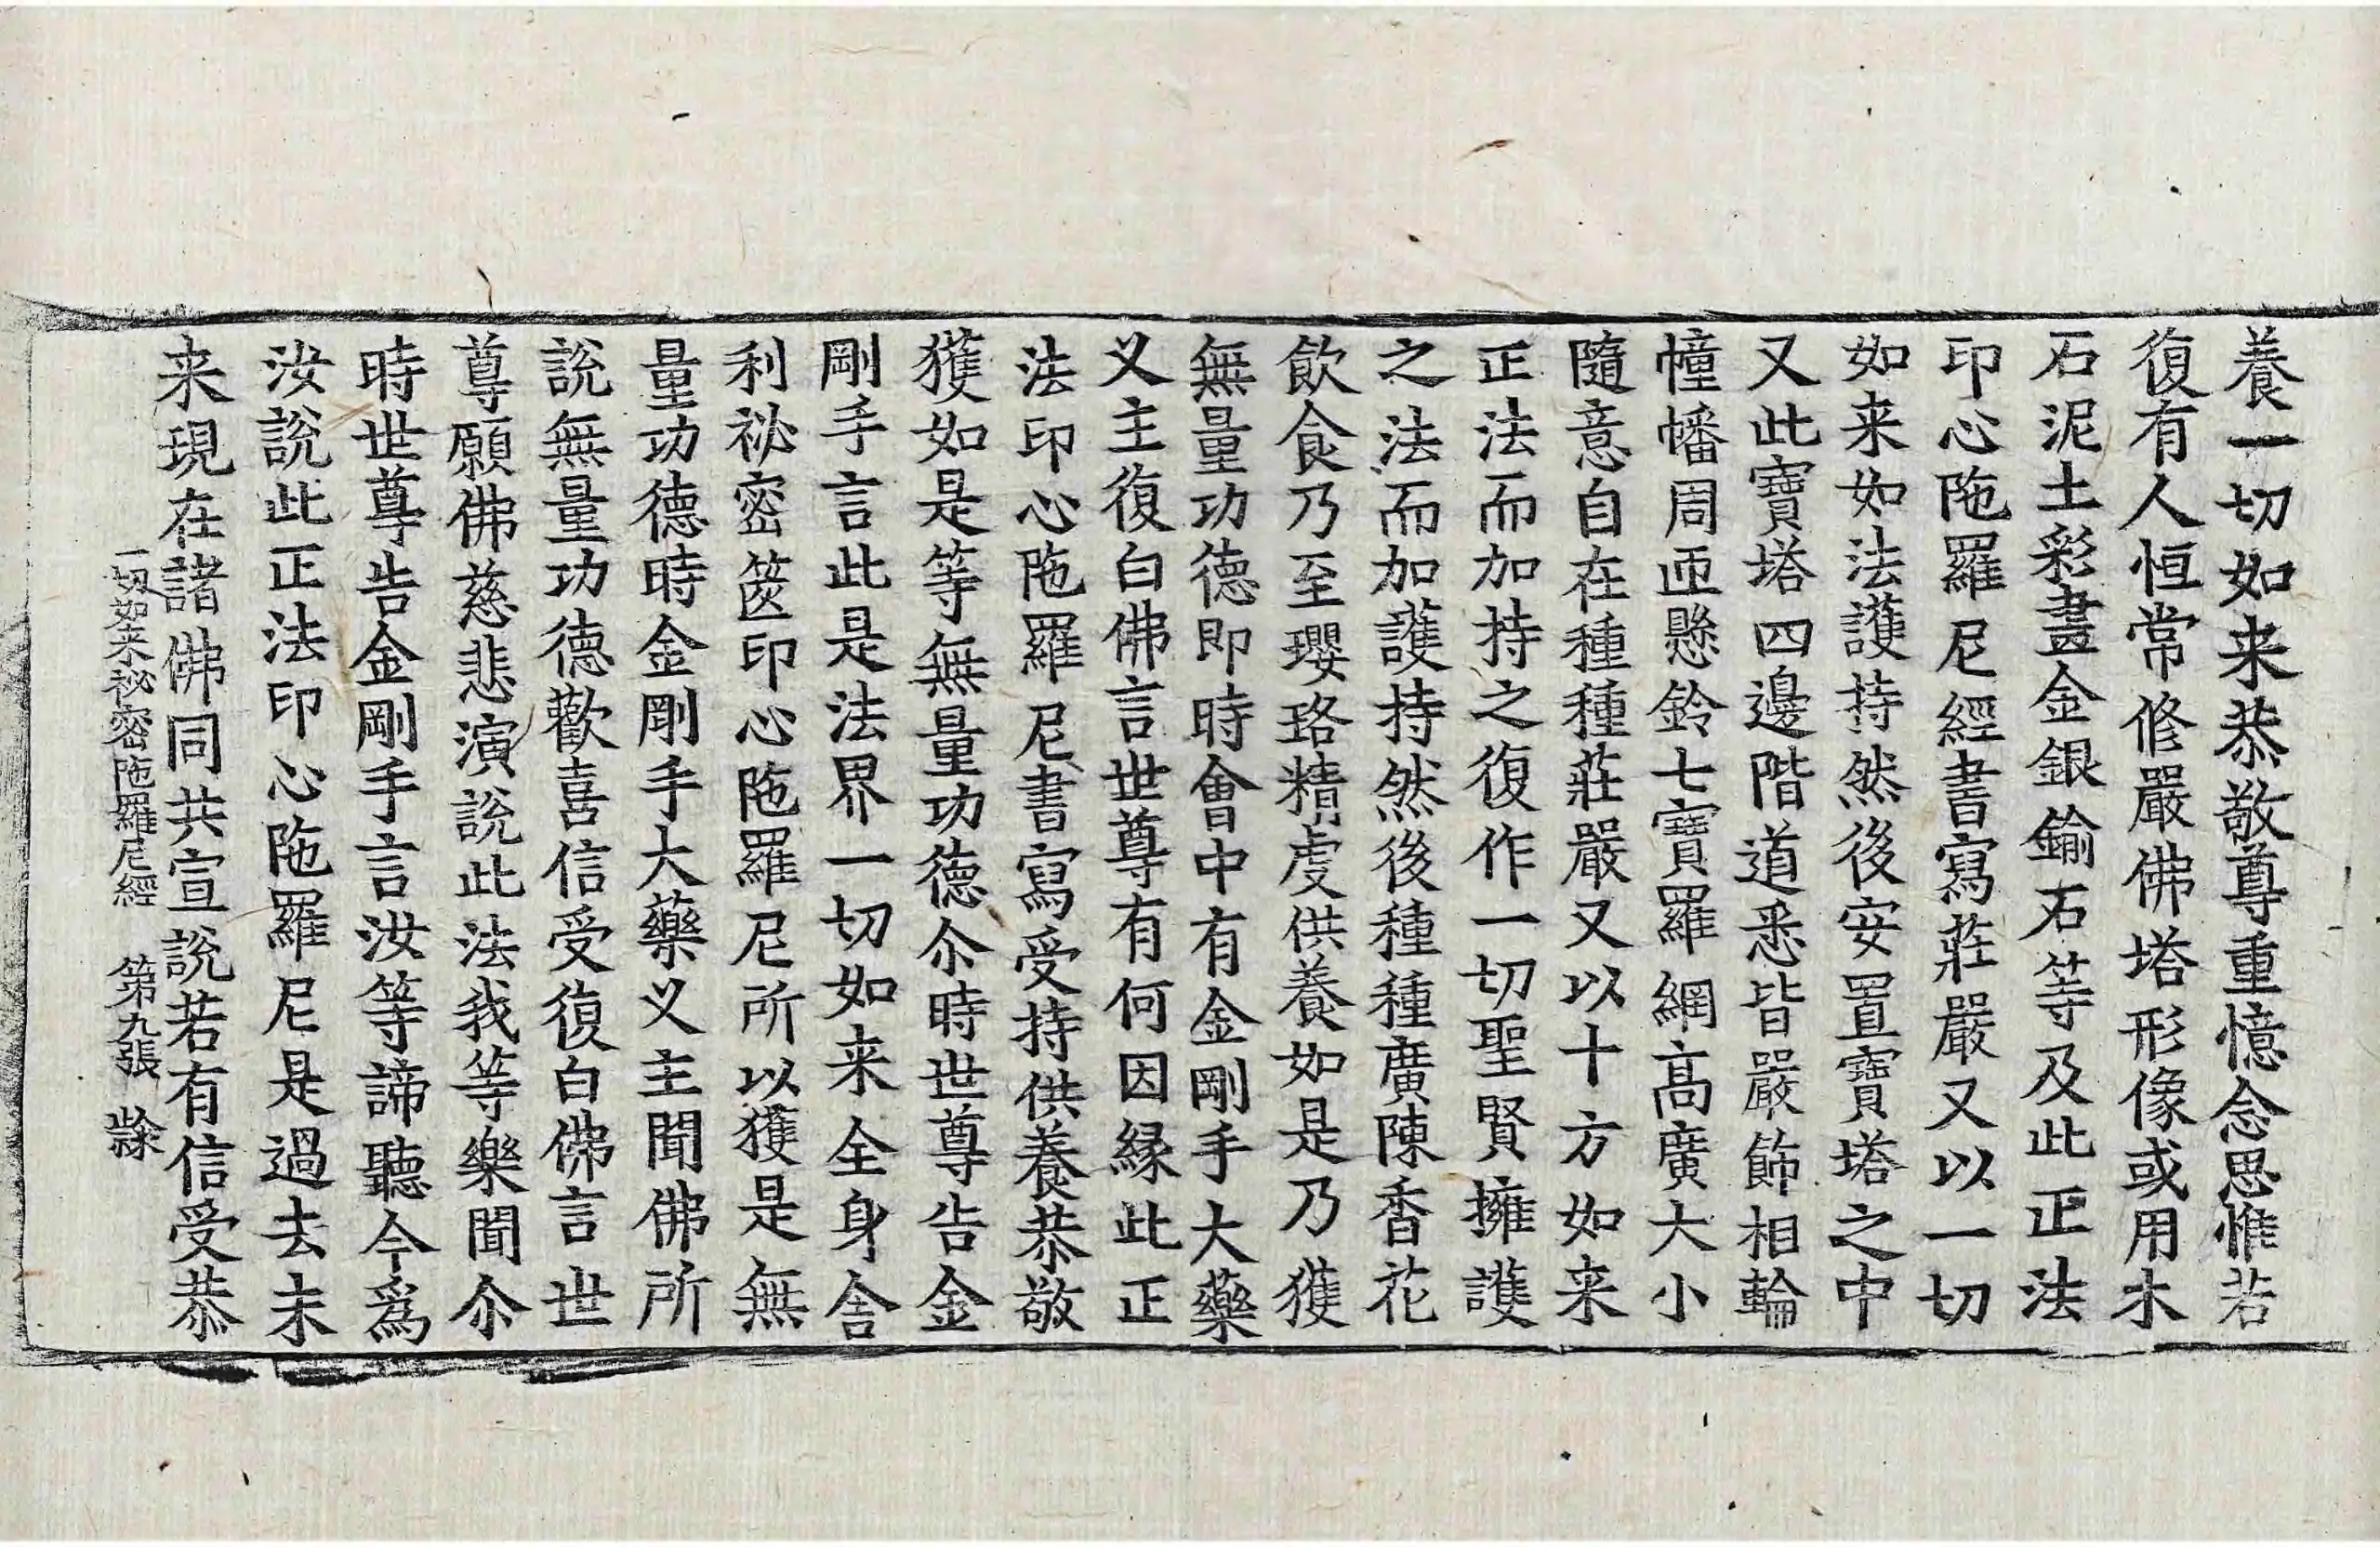 養一切如来恭敬尊重憶念思惟若
復有人恒常修嚴佛塔形像或用木
石泥土彩畫金銀鍮石等及此正法
印心陁羅尼經書寫莊嚴又以一切
如来如法護持然後安置寶塔之中
又此寶塔四邊階道悉皆嚴飾相輪
幢幡周迊懸鈴七寶羅網高廣大小
隨意自在種種莊嚴又以十方如来
正法而加持之復作一切聖賢擁護
之法而加護持然後種種廣陳香花
飲食乃至瓔珞精虔供養如是乃獲
無量功德即時會中有金剛手大藥
义主復白佛言世尊有何因緣此正
法印心陁羅尼書寫受持供養恭敬
獲如是等無量功德尒時世尊告金
剛手言此是法界一切如来全身舍
利祕密篋印心陁羅尼所以獲是無
量功德時金剛手大藥义主聞佛所
說無量功德歡喜信受復白佛言世
尊願佛慈悲演說此法我等樂聞尒
時世尊告金剛手言汝等諦聽今爲
汝說此正法印心陁羅尼是過去未
来現在諸佛同共宣說若有信受恭
一切如来祕密陁羅尼經 第九張